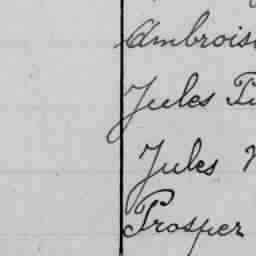 Ambrois
Jules
Jules
Prosper